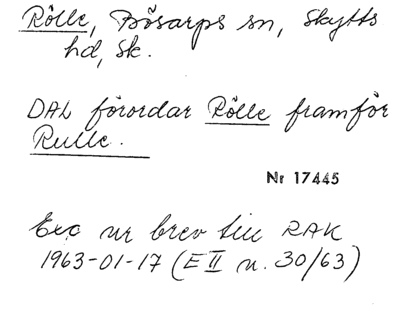 Rölle, Bösarps sn, Skytts
hd, Sk.
DAL förordar Rölle framför
Rulle.
Nr 17445
Exc ur brev till RAK
1963-01-17 (E II n. 30/63)